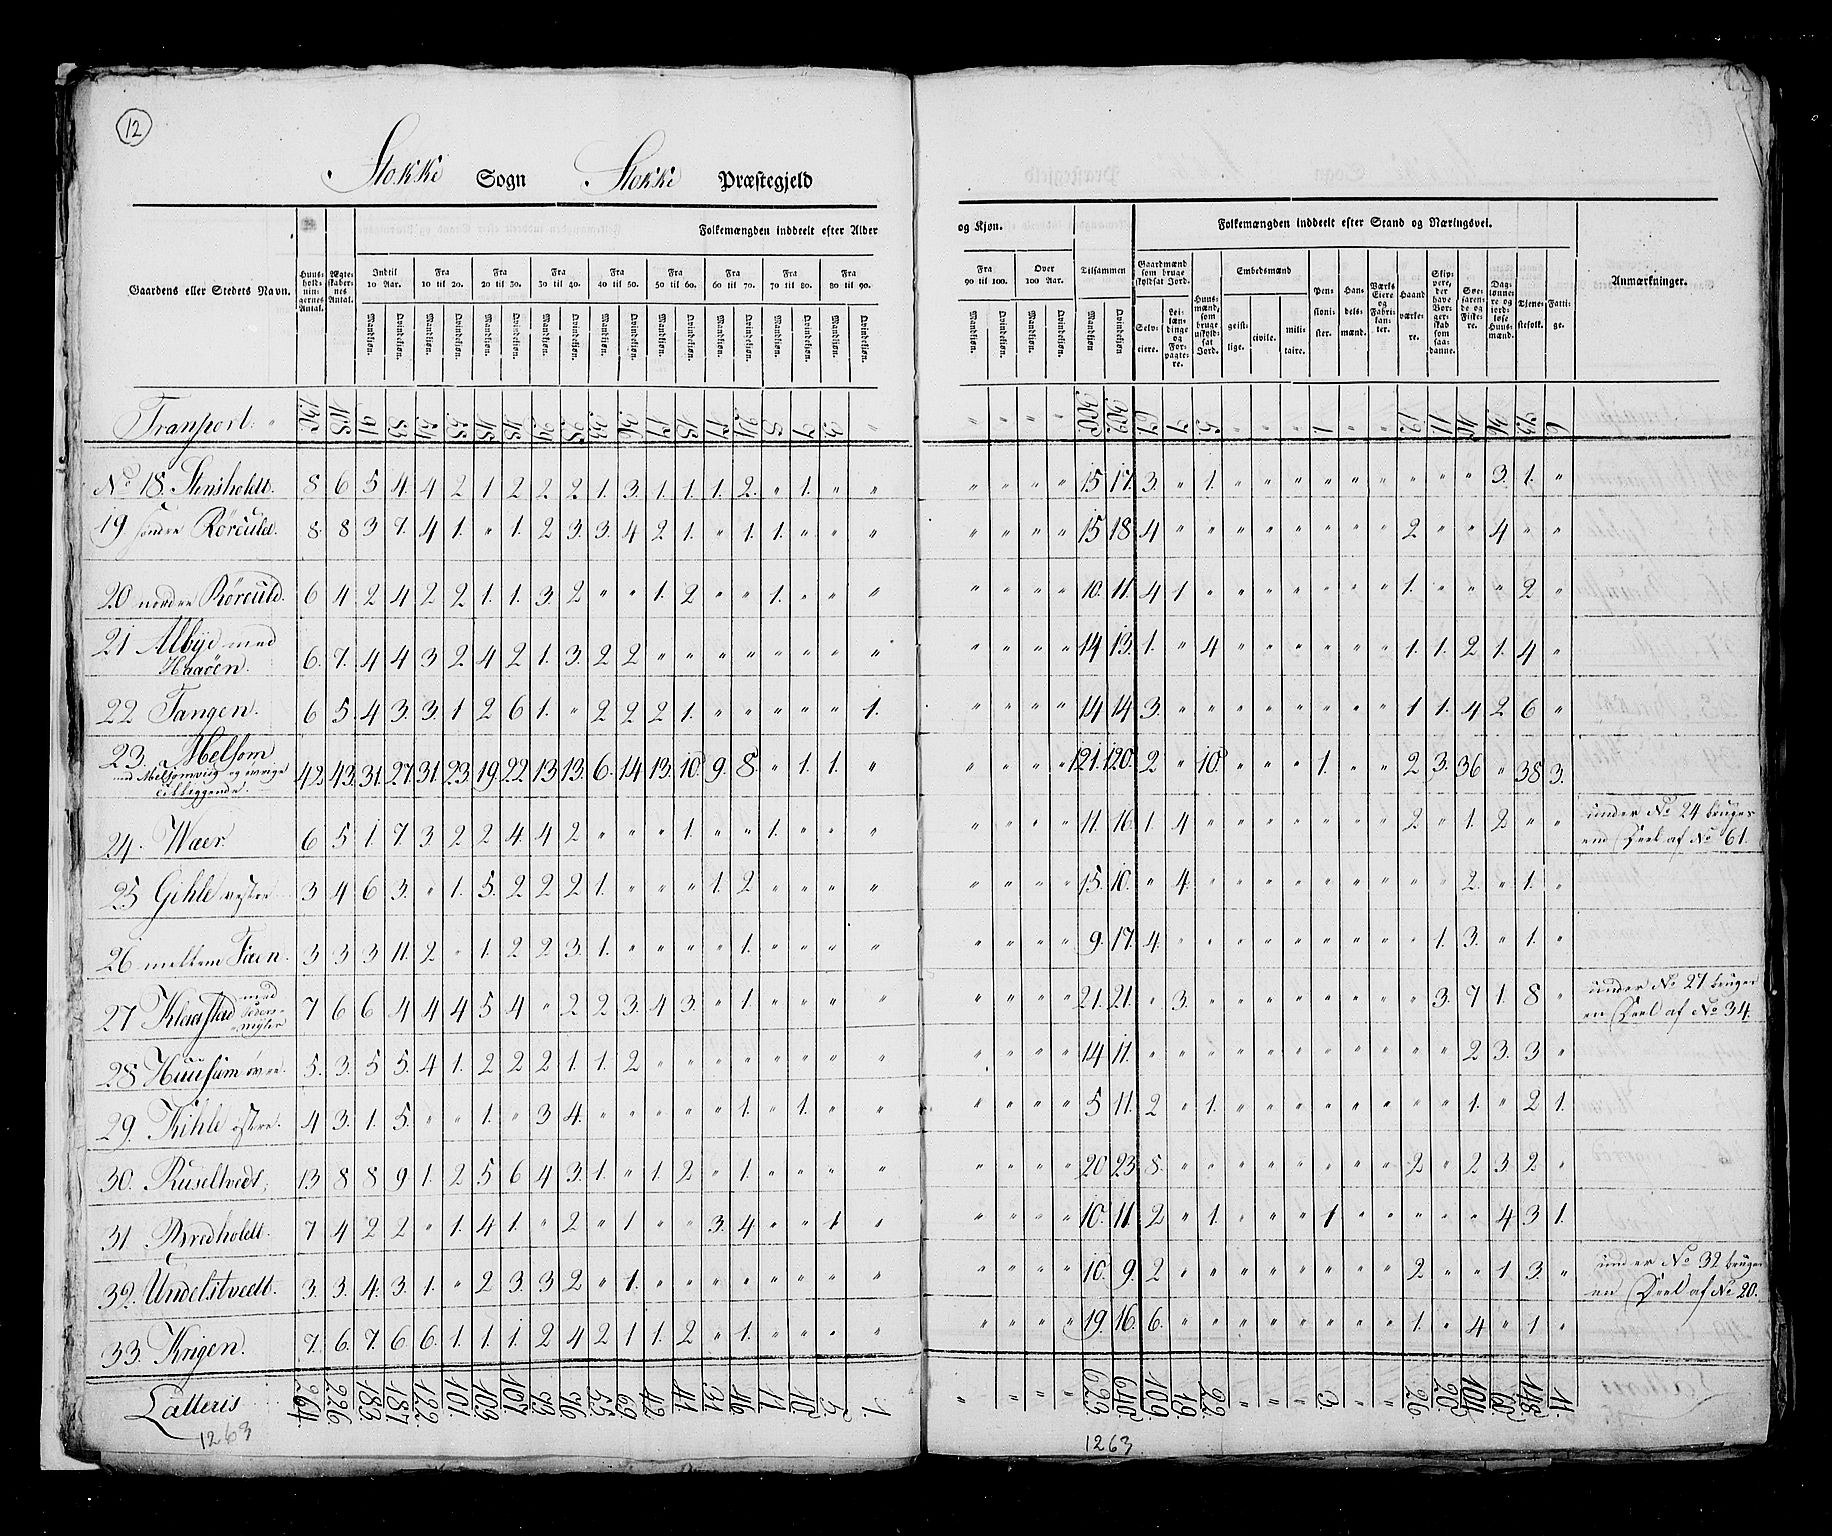 12
Stokke Sogn Stokke Præstegjeld
Gaardens eller Stedets Navn.
Huusholdningernes Antal.
Ægteskabernes Antal.
Folkemængden inddeelt efter Alder
og Kjøn.
Indtil 10 Aar. Fra 10 til 20. Fra 20 til 30. Fra 30 til 40. Fra 40 til 50. Fra 50 til 60. Fra 60 til 70. Fra 70 til 80. Fra 80 til 90.
Mandkjøn. Qvindekjøn. Mandkjøn. Qvindekjøn. Mandkjøn. Qvindekjøn. Mandkjøn. Qvindekjøn. Mandkjøn. Qvindekjøn. Mandkjøn. Qvindekjøn. Mandkjøn. Qvindekjøn. Mandkjøn. Qvindekjøn. Mandkjøn. Qvindekjøn.
Fra 90 til 100. Over 100 Aar. Tilsammen
Mandkjøn. Qvindekjøn. Mandkjøn. Qvindekjøn. Mandkjøn. Qvindekjøn
Folkemængden inddeelt efter Stand og Næringsvei.
Gaardmænd som bruge skyldsat Jord.
Selveiere. Leilændinge og Forpagtere.
Huusmænd, som bruge uskyldsat Jord.
Embedsmænd
geistlige. civile. militaire.
Pensionister.
Handelsmænd.
Værks Eiere og Fabrikanter.
Haandværkere.
Skippere, der have Borgerskab som saadanne.
Søefarende og Fiskere.
Daglønnere og jordløse Huusmænd.
Tjenestefolk.
Fattige.
Anmærkninger.
Transport.
No 18. Stensholdt. 8 6 5 4. 4 2 1 2 2 2 1. 3. 1. 1. 1. 2. " 1. " " " " " " 15 17. 3. " 1. " " " " " " " " " 3. 1. "
19 søndre Rørcüld. 8. 8 3 7. 4 1. " 1. 2 3. 3. 4 2 1. " 1. 1. " " " " " " " 15 18 4 " " " " " " " " 2 " " 4 " "
20 nordre Rørcüld. 6 4 2 4 2 2 1. 1. 3. 2 " " 1. 2 " " 1. " " " " " " " 10. 11. 4 1 " " " " " " " 1. " " " 2 "
21 Albÿe med Haaöen. 6. 7. 4 4 3 2 4 2 1. 3. 2 2 " " " " " " " " " " " " 14 13. 1. " 4 " " " " " " 1. 1. 2 1. 4 "
22 Tangen. 6 5. 4 3. 3. 1 2 6 1. " 2 2 2 1. " " " " " 1. " " " " 14 14 3. " " " " " " " " 1 1. 4 2 6 "
23. Melsom
med Melsomvig og øvrige tilliggende. 42 43. 31. 27. 31. 23. 19. 22. 13. 13. 6. 14 13. 10. 9. 8. " 1. 1. " " " " " 121. 120. 2 " 10. " " " 1. " " 2 3. 36 " 38 3.
24. Waer. 6 5 1 7. 3. 2 2 4. 4 2 " " " 1. " " 1. " " " " " " " 11. 16. 1. 4 " " " " " " " 2 " 1. 2 " " under No 24 bruges
end Deel af No 61.
25 Gihle vestre 3 4 6 3. " 1. 5. 2 2 2 1. " " " 1. 2 " " " " " " " " 15. 10. " 4. " " " " " " " " " 2. " 1. "
26 mellem Föen. 3 3 3 11. 2 " 1. 2 2 3. 1. " " " " 1. " " " " " " " " 9. 17. 4. " " " " " " " " " 1. 3. " 1. "
27 Klaastad med 7 6 6 4 4 4 5 4 " 2 2 3. 4 3. " 1. " " " " " " " " 21. 21. " 3. " " " " " " " " 3. 7 1. 8 " under No 27 bruges
en Deel af No 34.
28 Hüüsüm övre. 5. 3. 5 5. 4 1. 2 2 2 1. 1. 2 " " " " " " " " " " " " 14 11. " " " " " " " " " " " 2 3. 3 "
29. Kihle östre. 4 3. 1. 5. " " 1. " 3 4. " " " " " 1. " 1. " " " " " " 5 11. 2 " 1. " " " " " " " " 1. " 2 1.
30. Rüseltvedt. 13 8 8 9. 1. 2 5 6 4 3. 1. " 1. 2 " 1. " " " " " " " " 20 23 8. " " " " " " " " 2 " 2 3 2 "
31. Bredholdt. 7 4 2 2 " 1. 4 1. " 2 " 1 " " 3. 4 " " 1 " " " " " 10. 11. 2 " 1. " " " 1 " " " " " 4 3 1.
32. Undelstvedt. 3. 3. 4. 3. 1. " 2 3. 3 2 " 1. " " " " " " " " " " " " 10. 9. 2 " " " " " " " " 2 " " 1 3. " under No 32 bruges
en Deel af No 20.
33. Krigen. 7. 6. 7. 6 6. 1. 1. 1. 2 4 2 1 1. 2 " 1. " " " " " " " " 19. 16. 6. " " " " " " " " 1. " 4 " 1 "
Latteris 264. 226 183. 187 122. 101. 103 107. 73. 76. 55. 69. 42 41 31 46. 11. 10. 5. 1. " " " " 623. 640. 109 19. 22. " " " 3. " " 26 20. 104 60. 148. 11.
1263
1263